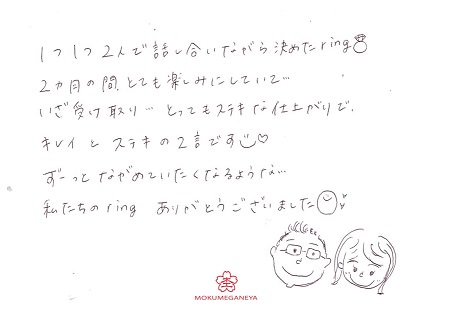 1つ1つ2人で話し合いながら決めたring
2カ月の間、とても楽しみにしていて…
いざ受け取り…とってもステキな仕上がりで、
キレイとステキの2言です
ずーっとながめていたくなるような…
私たちのring ありがとうございました
MOKUMEGANEYA